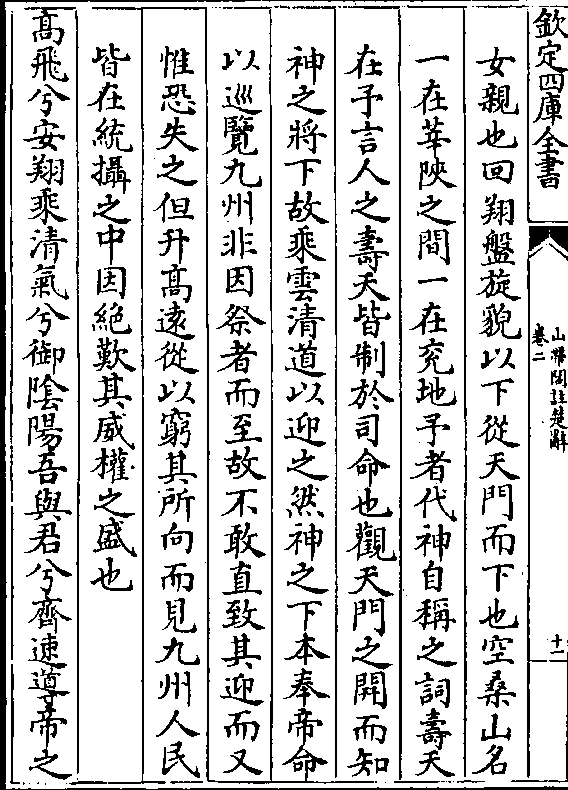 欽定四庫全書
山帶閣註楚辭
卷二
十二
女親也回翔盤旋貌以下從天門而下也空桑山名
一在莘陝之間一在兖地予者代神自稱之詞壽夭
在予言人之壽夭皆制於司命也觀天門之開而知
神之將下故乘雲清道以迎之然神之下本奉帝命
以巡覽九州非因祭者而至故不敢直致其迎而又
惟恐失之但升高遠從以窮其所向而見九州人民
皆在統攝之中因絶歎其威權之盛也
高飛兮安翔乘清氣兮御陰陽吾與君兮齊速導帝之